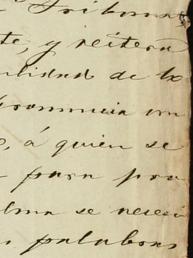 Tribuna
te, y reitera
alidad de lo
pronuncia un
e, á quien se
para pro
alma se necesi
palabras